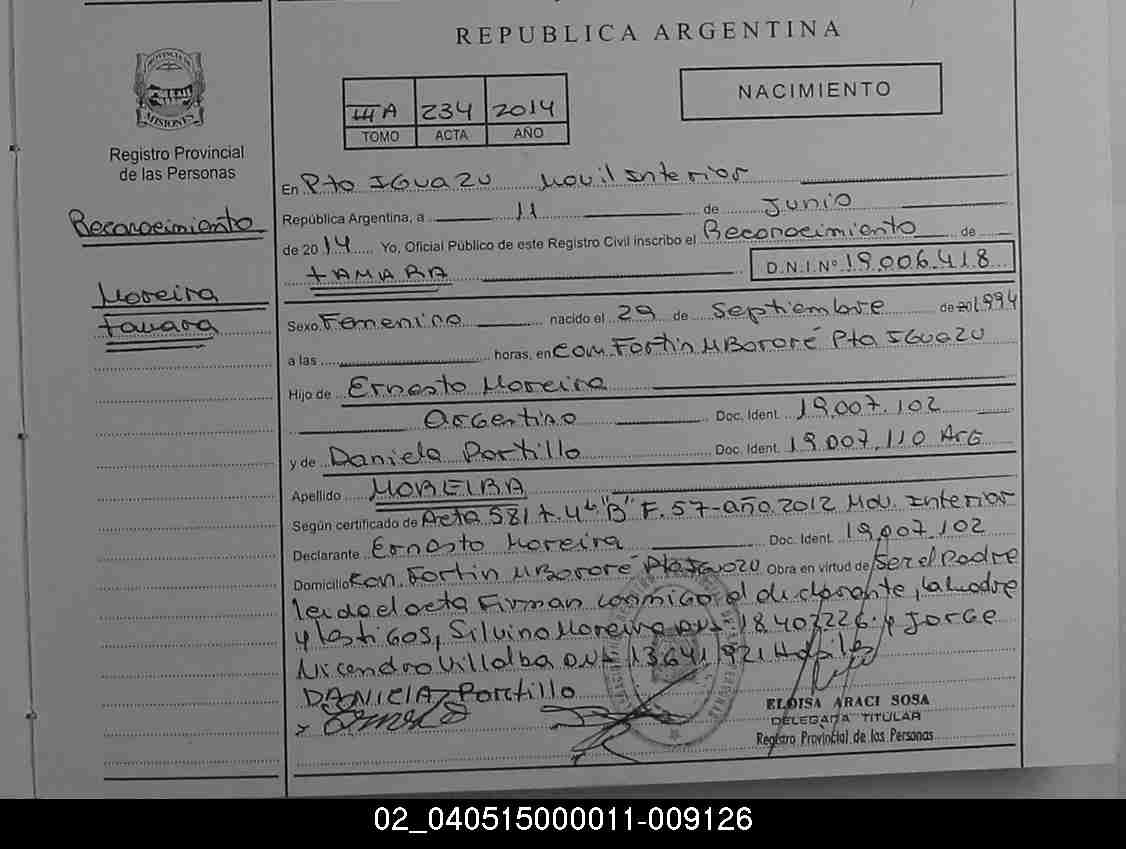 REPUBLICA ARGENTINA
PROVINCIA DE
MISIONES
Registro Provincial
de las Personas
III A 234 2014
TOMO ACTA AÑO
NACIMIENTO
Reconocimiento
Moreira
Tamara
En Pto IGuazu Movil Interior
República Argentina, a 11 de Junio
de 2014 Yo, Oficial Público de este Registro Civil inscribo el Reconocimiento de
TAMARA D.N.I.Nº 19.006.418
Sexo Femenino nacido el 29 de Septiembre de 201994
a las horas, en Com. Fortin MBororé Pto IGuazu
Hijo de Ernesto Moreira
Argentino Doc. Ident. 19.007.102
y de Daniela Portillo Doc. Ident. 19.007.110 ArG
Apellido MOREIRA
Según certificado de Acta 581 t. 4º "B" F. 57-año 2012 Mov. Interior
Declarante Ernesto Moreira Doc. Ident. 19.007.102
Domicilio Com. Fortin MBororé Pto IGuazu Obra en virtud de Ser el Padre
leida el acta Firman conmigo el declarante, la Madre
y testigos, Silvino Moreira DNI 18.407.226 y Jorge
Nicandro Villalba DNI 13641921
DANIELA Portillo
x Ernesto
ELOISA ARACI SOSA
DELEGADA TITULAR
Registro Provincial de las Personas
02_040515000011-009126